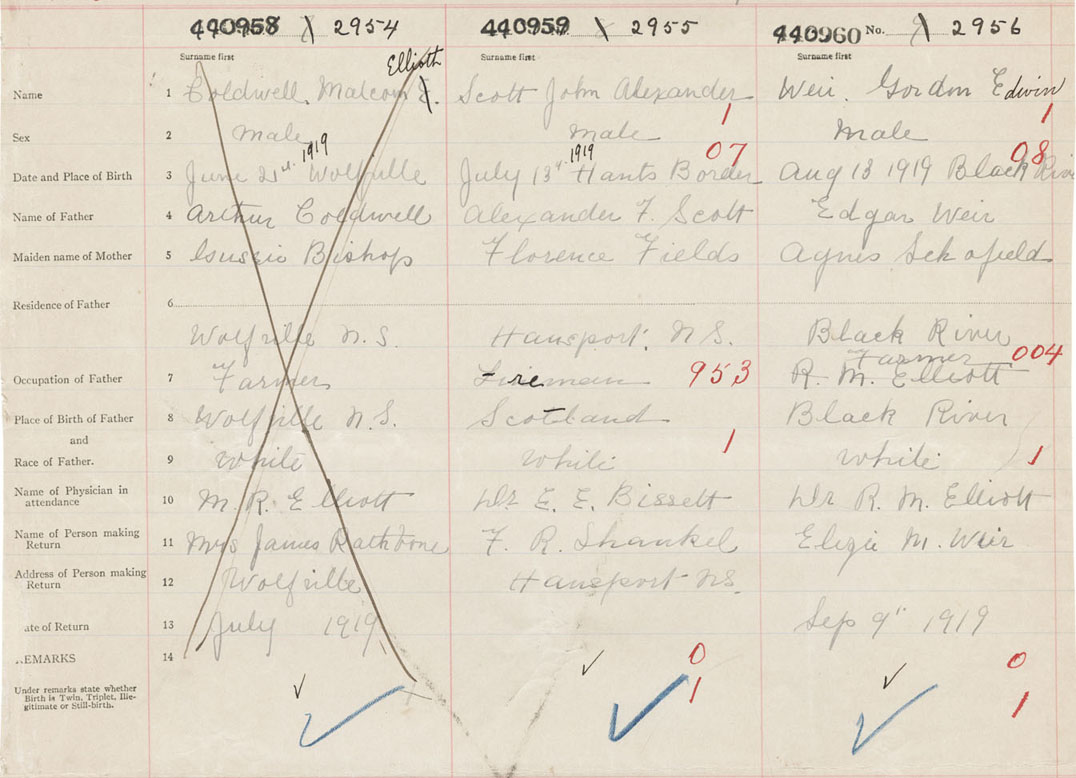 440958 2954 440959 2955 440960 No. 2956
Surname first Surname first Surname first
Elliott
Name 1 Coldwell, Malcom E. Scott John Alexander Weir. Gordon Edwin
1 1
Sex 2 Male male Male
1919 1919 07 08
Date and Place of Birth 3 June 21st Wolfville July 13th Hants Border Aug 13 1919 Black River
Name of Father 4 Arthur Coldwell Alexander F. Scott Edgar Weir
Maiden name of Mother 5 Gussie Bishop Florence Fields Agnes Schofield
Residence of Father 6
Wolfville N.S. Hansport. N.S. Black River
Farmer 004
Occupation of Father 7 Farmer Fireman 953 R. M. Elliott
Place of Birth of Father 8 Wolfville N.S. Scotland Black River
and
1 1
Race of Father. 9 White White White
Name of Physician in
attendance 10 M. R. Elliott Dr E. E. Bissett Dr R. M. Elliott
Name of Person making
Return 11 Mrs James Rathbone F. R. Shankel M. Weir
Address of Person making
Return 12 Wolfville Hansport NS.
ate of Return 13 July 1919 Sep 9" 1919
EMARKS 14
0 0
Under remarks state whether
Birth is Twin, Triplet, Ille-
gitimate or Still-birth.
1 1